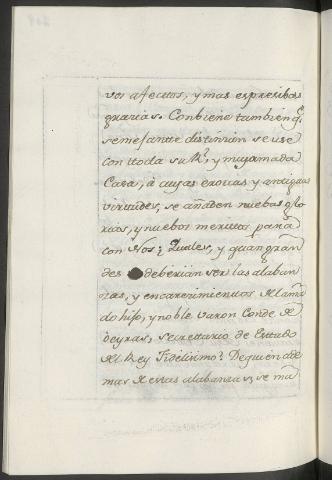 vos afectos, y mas expresibas
gracias. Conbiene tambien q.e
semejantte distinzion se use
con ttoda su R.l y muy amada
Casa, à cuyas eroicas y antiguas
virtudes, se añaden nuebas glo
rias, y nuebos meritos para
con Nos; Quales, y quan gran
des deberian ser las alaban
zas, y encarezimientos del ama
do hijo, y noble varon Conde de
Oeyras, Secrettario de Estado
del Rey Fidelisimo? De quien de
mas de estas alabanzas, se ma